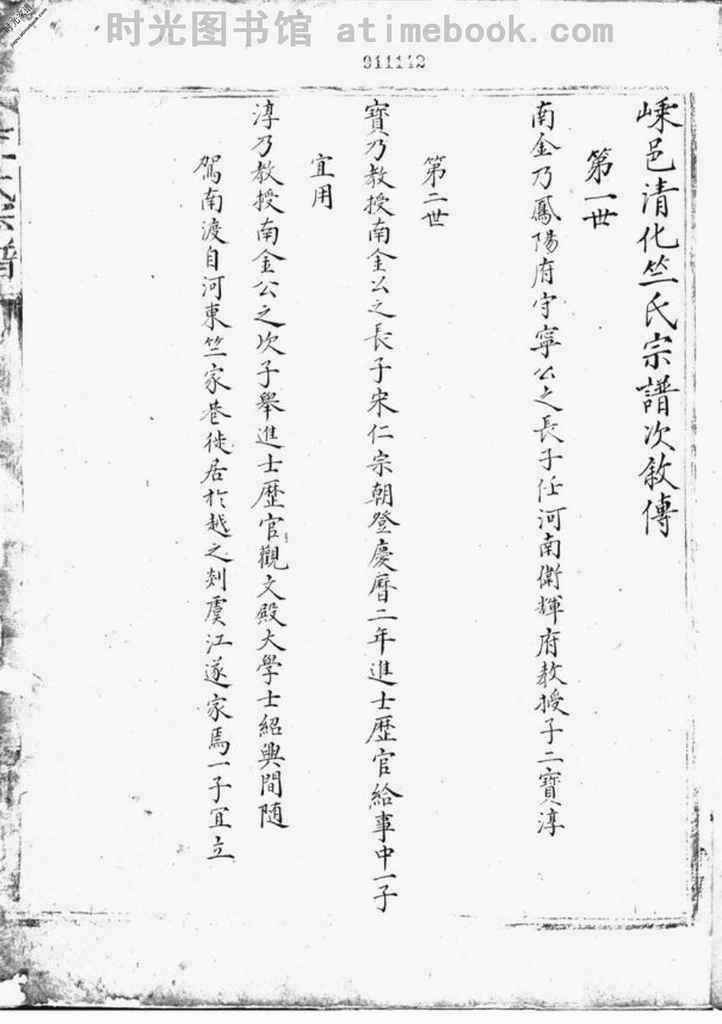 时光图书馆 atimebook.com
911142
嵊邑清化竺氏宗譜次敘傳
第一世
南金乃鳳陽府守寧公之長子任河南衛輝府教授子二寶淳
第二世
寶乃教授南金公之長子宋仁宗朝登慶曆二年進士歷官給事中一子
宜用
淳乃教授南金公之次子舉進士歷官觀文殿大學士紹興間随
駕南渡自河東竺家巷徙居於越之剡虞江遂家焉一子宜立